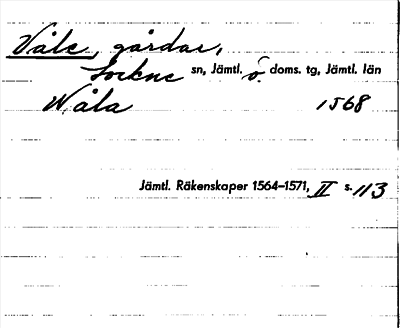 Våle, gårdar,
Lockne sn, Jämtl. ö. doms. tg, Jämtl. län
Wåla 1568
Jämtl. Räkenskaper 1564–1571, II s. 113